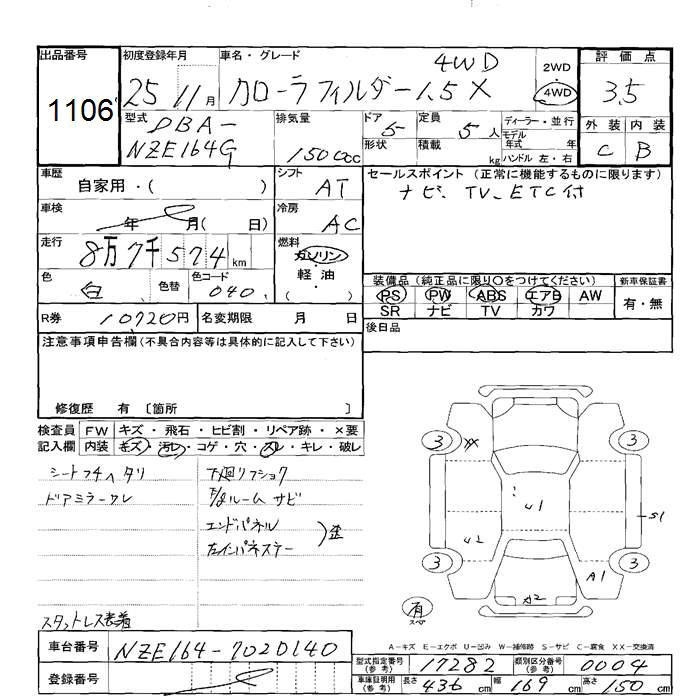 出品番号 初度登録年月 車名・グレード 4WD 2WD 評価点
1106 25 11月 カローラフィルダー 1.5X 4WD 3.5
型式 排気量 ドア 定員 ディーラー・並行 外装 内装
DBA- 5 5人 モデル年式 年式 C B
NZE164G 1500cc 形状 積載 kg ハンドル 左・右
車歴 シフト セールスポイント (正常に機能するものに限ります)
自家用・( ) AT ナビ、TV、ETC付
車検 冷房
年 月( 日) AC
走行 燃料
8万7千574km ガソリン・
色 色替 色コード 軽油 装備品 (純正品に限り○をつけてください) 新車保証書
白 040 ( ) PS PW ABS エアB AW 有・無
R券 10720円 名変期限 月 日 SR ナビ TV カワ
注意事項申告欄(不具合内容等は具体的に記入して下さい) 後日品
修復歴 有 〔箇所 〕
検査員 FW キズ・飛石・ヒビ割・リペア跡・×要
記入欄 内装 キズ・汚レ・コゲ・穴・スレ・キレ・破レ
シートフチヘタリ 下廻リフショク
ドアミラーワレ ルームサビ
エンドパネル
左インパネステー 歪
スタットレス装着
3 XX 3
U1
S1
U2
3 A1 3
A2
有
スペア
A-キズ E-エクボ U-凹み W-補修跡 S-サビ C-腐食 XX-交換済
車台番号 NZE164-7020140 型式指定番号(参考) 17282 類別区分番号(参考) 0004
登録番号 車庫証明用(参考) 長さ 436cm 幅 169cm 高さ 150cm